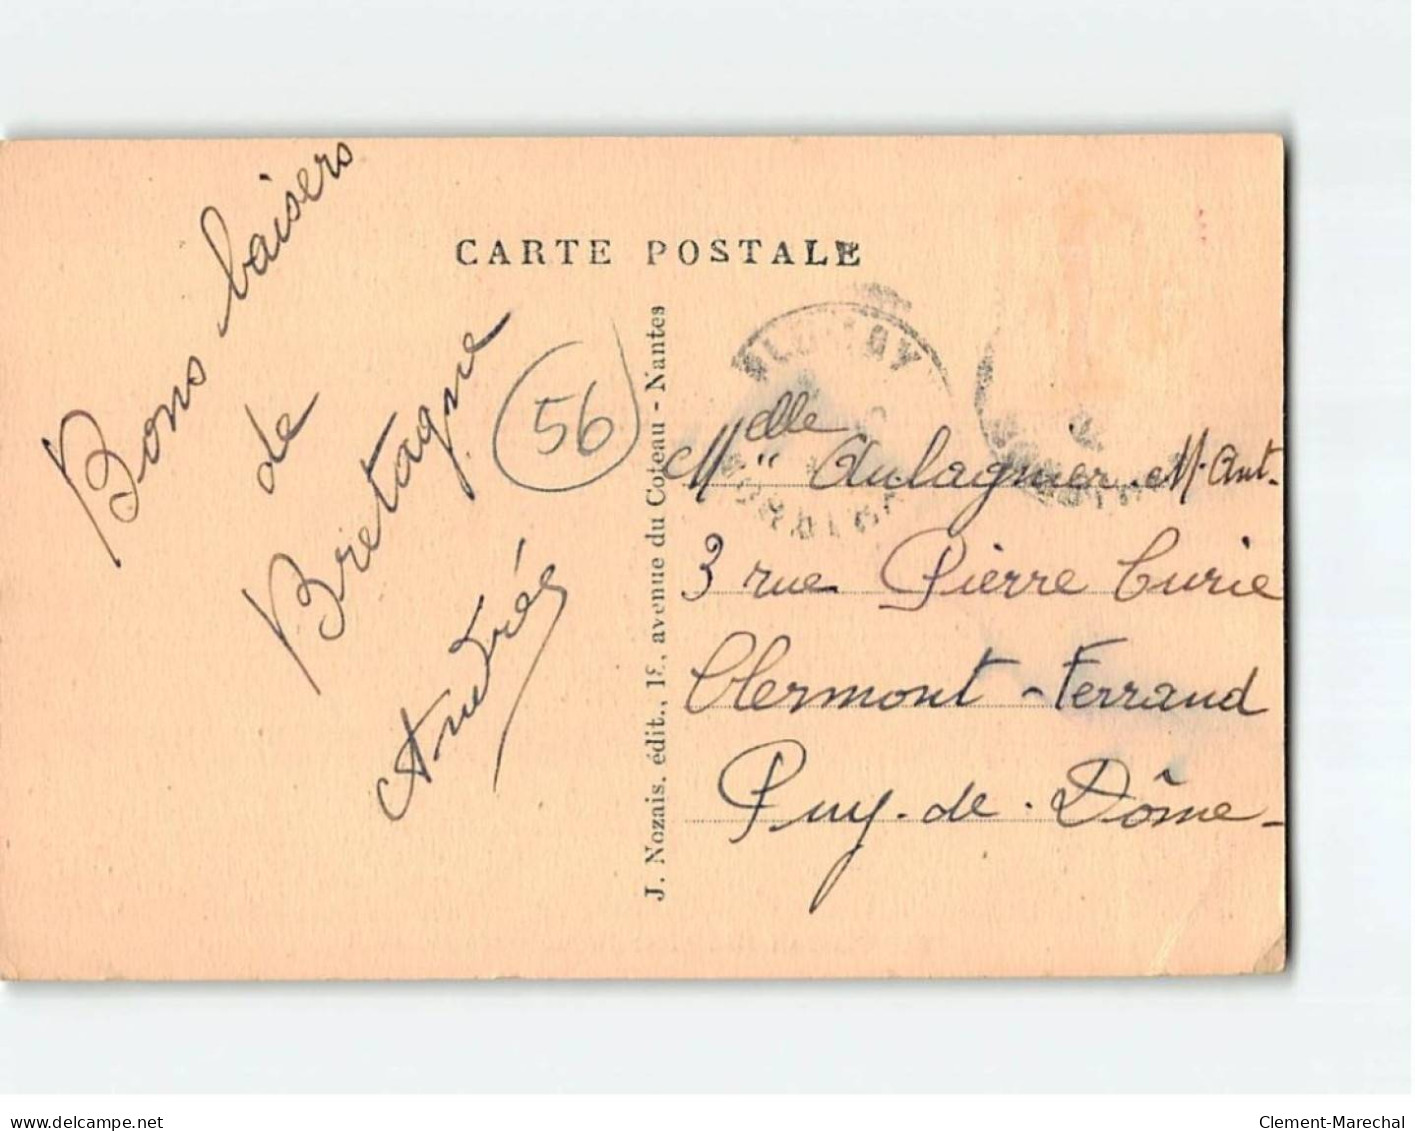 CARTE POSTALE
Bons baisers
de
Bretagne
Andrée
56
J. Nozais, édit., 18, avenue du Coteau - Nantes
Melle Aulagnier M. Ant.
3 rue Pierre Curie
Clermont-Ferrand
Puy-de-Dôme
MORBIHAN
www.delcampe.net
Clement-Marechal